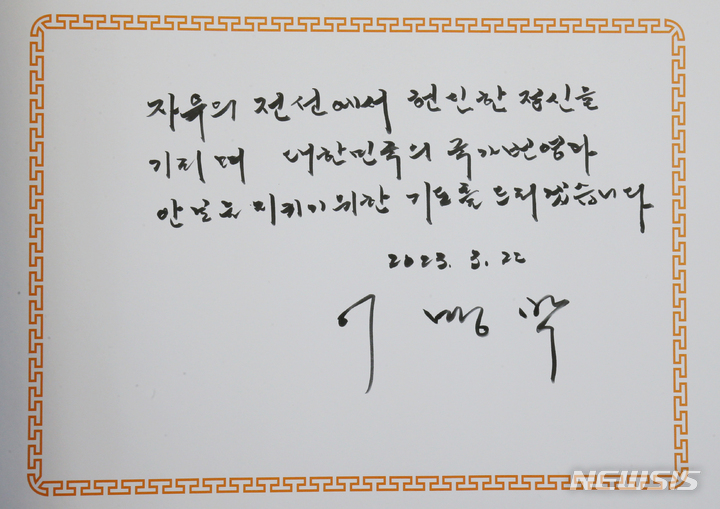 자유의 전선에서 헌신한 정신을
기리며 대한민국의 국가번영과
안보를 지키기위한 기도를 드리겠습니다.
2023. 3. 22
이 명 박
NEWSIS